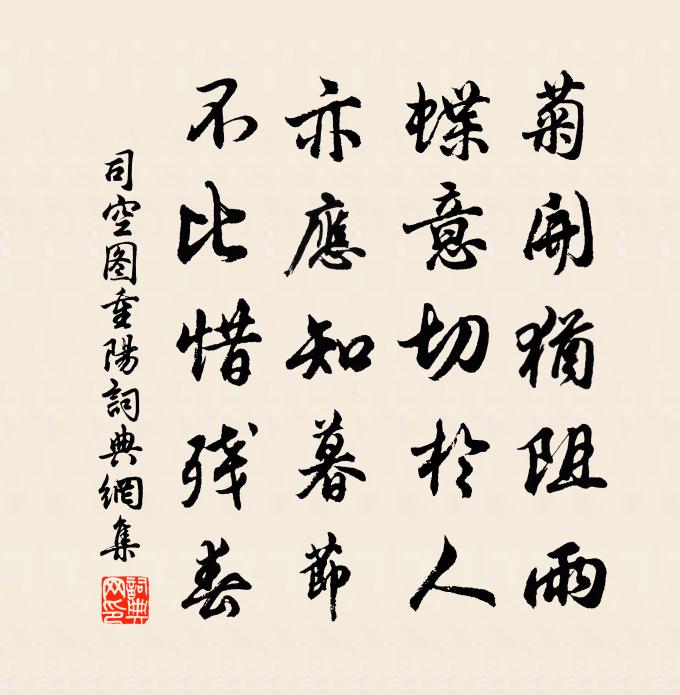 菊開猶阻雨
蝶意切於人
亦應知暮節
不比惜残春
司空圖重陽詞典網集
詞典網印